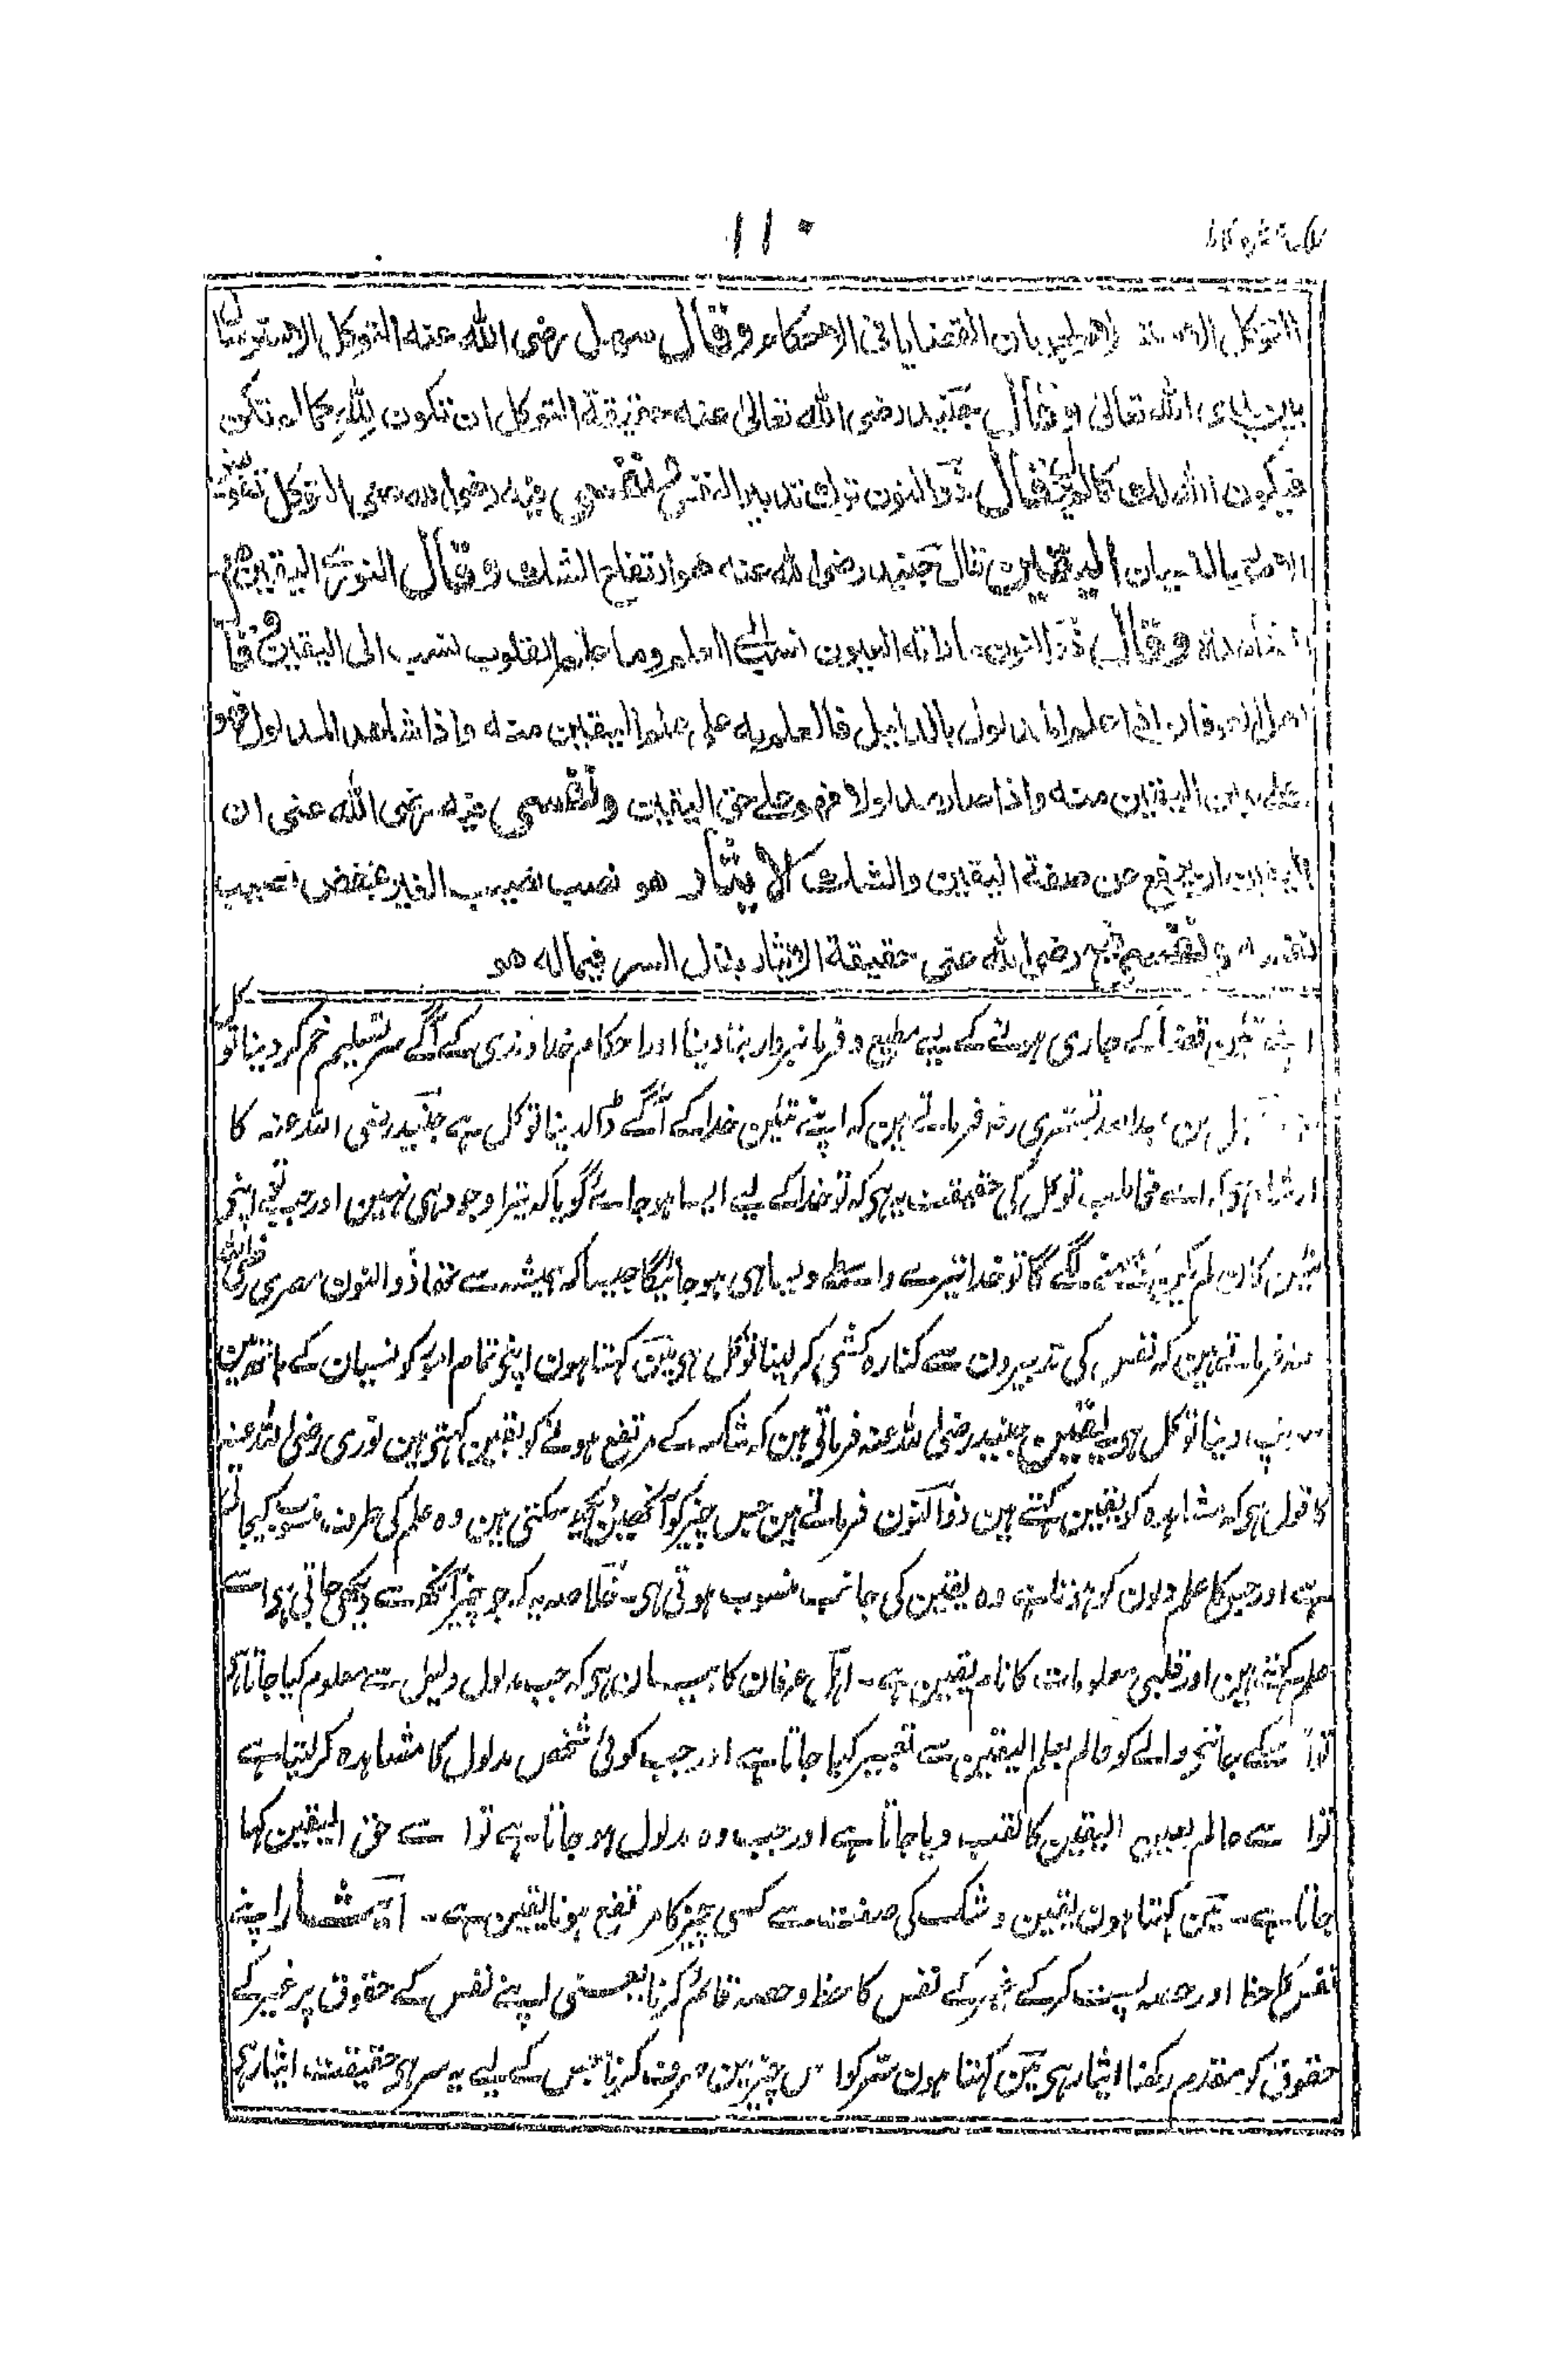 ۱۱۰
التوکل الاستسلام لجریان القضایا فی الاحکام وقال سهل رضی الله عنه التوکل الاسترسال
بین یدی الله تعالی وقال جنید رضی الله تعالیٰ عنه حقیقة التوکل ان تکون لله کما لم تکن
فیکون الله لک کما لم یزل وقال ذو النون ترک تدبیر النفس ونفسی فیه رضی الله عنی التوکل تفویض
الامور بالنسیان الیقین قال جنید رضی الله عنه هو ارتفاع الشک وقال النوری الیقین هو
المشاهدة وقال ذو النون ما راته العیون نسب الی العلم وما علم القلوب نسب الی الیقین وقال
اهل العرفان اذا علم المدلول بالدلیل فالعلم به علی علم الیقین منه واذا شاهد المدلول فهو
علی عین الیقین منه واذا صار مدلولا فهو علی حق الیقین ونفسی فیه رضی الله عنی ان
الیقین ارتفع من صفة الیقین والشک الایثار هو نصب نصیب الغیر بنقض نصیب
نفسه ونفسی فیه رضی الله عنی حقیقة الایثار بذل السر فیما له هو
اپنے تئین قضا کے جاری ہونے کے لیے مطیع و فرمانبردار بنا دینا اور احکام خداوندی کے آگے سر تسلیم خم کر دینا توکل
سهل بن عبداللہ تستری رضہ فرماتے ہین کہ اپنے تئین خدا کے آگے ڈالدینا توکل ہے جنید رضی اللہ عنہ کا
ارشاد ہی کہ اے مخاطب توکل کی حقیقت یہ ہی کہ تو خدا کے لیے ایسا ہو جائے گویا کہ تیرا وجود ہی نہین اور جب تو اپنی
تئین کان لم یکن سمجھنے لگے گا تو خدا تیرے واسطے ویسا ہی ہو جائیگا جیسا کہ ہمیشہ سے تھا ذو النون مصری رضی اللہ
عنہ فرماتے ہین کہ نفس کی تدبیرون سے کنارہ کشی کر لینا توکل ہی مین کہتا ہون اپنی تمام امور کو نسیان کے ہاتھ مین
سونپ دینا توکل ہی یقین جنید رضی اللہ عنہ فرماتی ہین کہ شک کے مرتفع ہونے کو یقین کہتی ہین نوری رضی اللہ عنہ
کا قول ہی کہ مشاہدہ کو یقین کہتے ہین ذو النون فرماتے ہین جس چیز کو آنکھین دیکھ سکتی ہین وہ علم کی طرف منسوب کیجاتی
ہے اور جس کا علم دلون کو ہوتا ہے وہ یقین کی جانب منسوب ہوتی ہی۔ خلاصہ یہ کہ جو چیز آنکھ سے دیکھی جاتی ہی اسے
علم کہتے ہین اور قلبی معلومات کا نام یقین ہے۔ اہل عرفان کا بیان ہی کہ جب مدلول دلیل سے معلوم کیا جاتا ہے
تو اسکے جاننے والے کو عالم بعلم الیقین سے تعبیر کیا جاتا ہے اور جب کوئی شخص مدلول کا مشاہدہ کر لیتا ہے
تو اسے عالم بعین الیقین کا لقب دیا جاتا ہے اور جب وہ مدلول ہو جاتا ہے تو اسے حق الیقین کہا
جاتا ہے۔ مین کہتا ہون یقین و شک کی صفت سے کسی چیز کا مرتفع ہونا یقین ہے۔ ایثار اپنے
نفس کا حظ اور حصہ پست کرکے غیر کے نفس کا حظ و حصہ قائم کرنا یعنی اپنے نفس کے حقوق پر غیر کے
حقوق کو مقدم رکھنا ایثار ہی مین کہتا ہون سر کو اس چیز مین صرف کرنا جس کے لیے یہ سر ہی حقیقت ایثار ہے